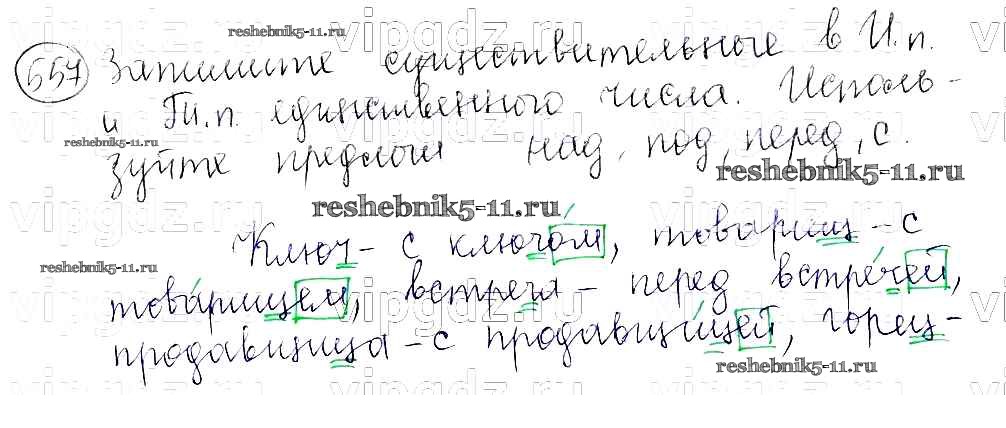 557 Запишите существительные в И.п.
и Тв.п. единственного числа. Исполь-
зуйте предлоги над, под, перед, с.
Ключ - с ключом, товарищ - с
товарищем, встреча - перед встречей,
продавщица - с продавщицей, горец-
reshebnik5-11.ru
reshebnik5-11.ru
reshebnik5-11.ru
reshebnik5-11.ru
reshebnik5-11.ru
reshebnik5-11.ru
vipgdz.ru